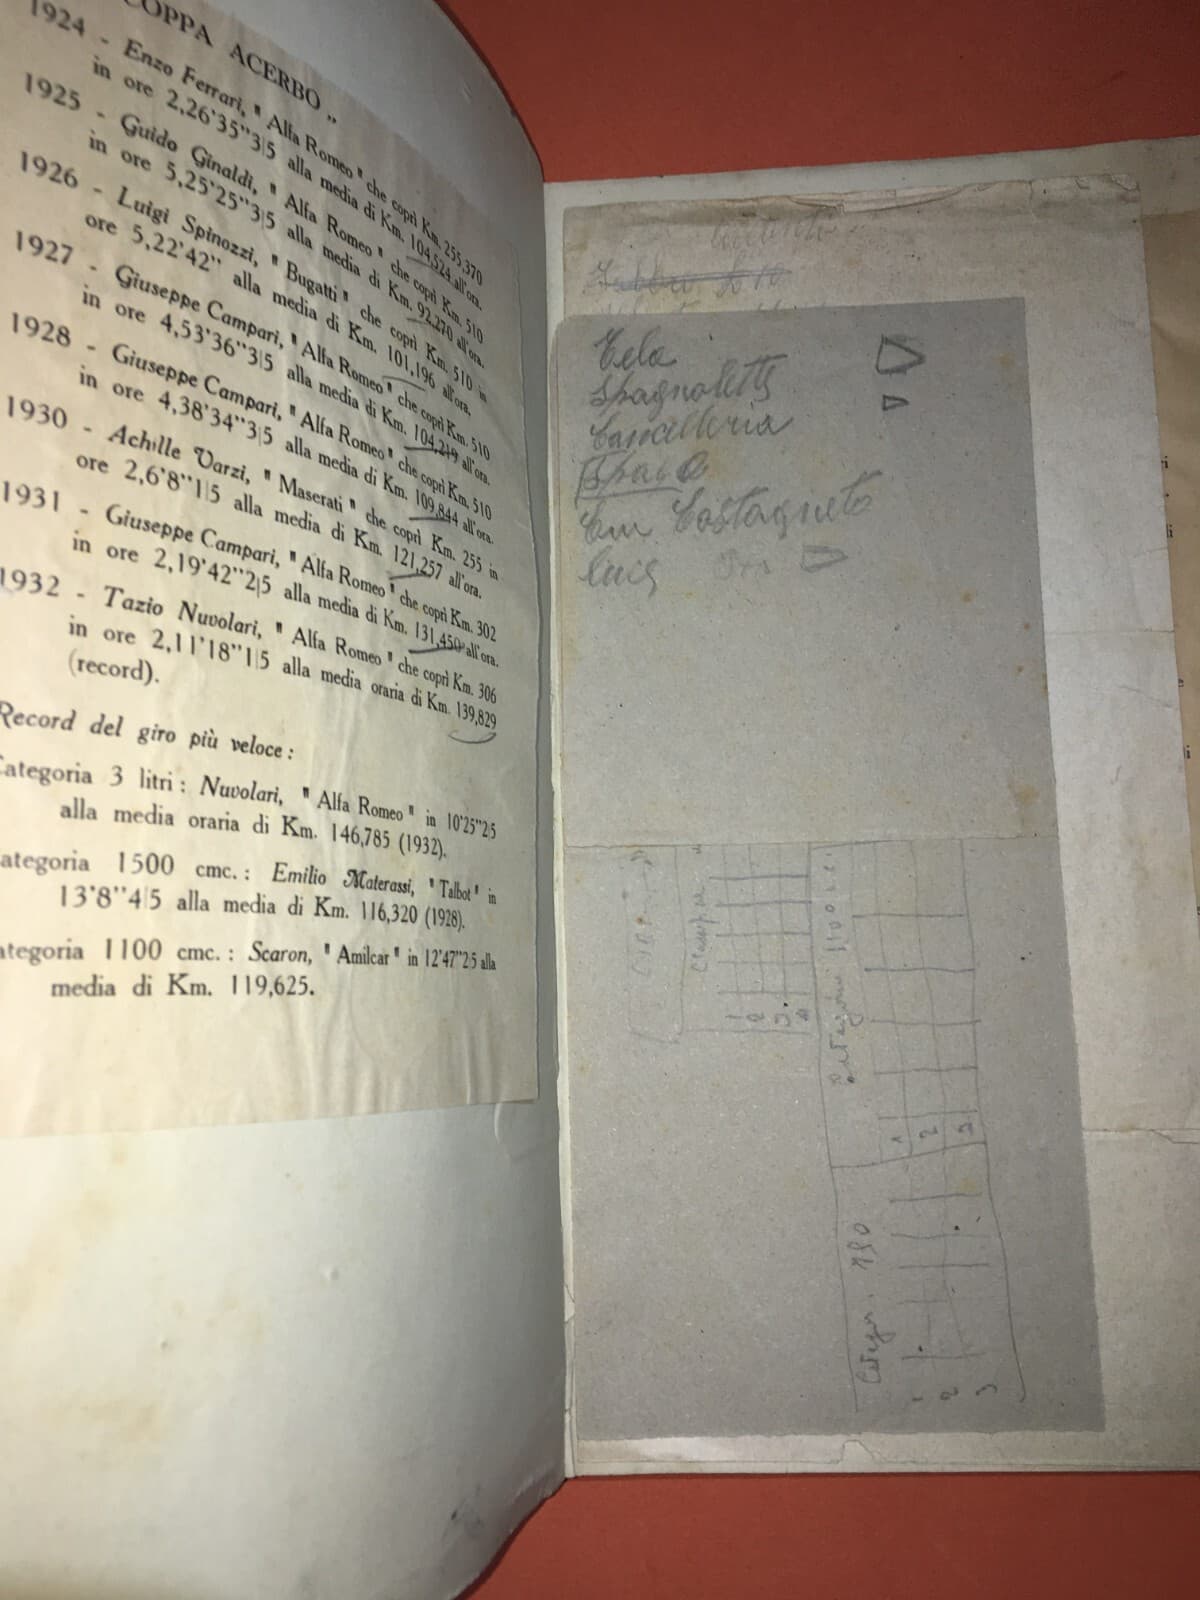 COPPA ACERBO „
1924 - Enzo Ferrari, " Alfa Romeo " che coprì Km. 255,370
in ore 2,26'35''3|5 alla media di Km. 104,524 all'ora.
1925 - Guido Ginaldi, " Alfa Romeo " che coprì Km. 510
in ore 5,25'25''3|5 alla media di Km. 92,270 all'ora.
1926 - Luigi Spinozzi, " Bugatti " che coprì Km. 510 in
ore 5,22'42'' alla media di Km. 101,196 all'ora.
1927 - Giuseppe Campari, " Alfa Romeo " che coprì Km. 510
in ore 4,53'36''3|5 alla media di Km. 104,219 all'ora.
1928 - Giuseppe Campari, " Alfa Romeo " che coprì Km. 510
in ore 4,38'34''3|5 alla media di Km. 109,844 all'ora.
1930 - Achille Varzi, " Maserati " che coprì Km. 255 in
ore 2,6'8''1|5 alla media di Km. 121,257 all'ora.
1931 - Giuseppe Campari, " Alfa Romeo " che coprì Km. 302
in ore 2,19'42''2|5 alla media di Km. 131,450 all'ora.
1932 - Tazio Nuvolari, " Alfa Romeo " che coprì Km. 306
in ore 2,11'18''1|5 alla media oraria di Km. 139,829
(record).
Record del giro più veloce :
Categoria 3 litri : Nuvolari, " Alfa Romeo " in 10'25''25
alla media oraria di Km. 146,785 (1932).
ategoria 1500 cmc. : Emilio Materassi, " Talbot " in
13'8''4|5 alla media di Km. 116,320 (1928).
ategoria 1100 cmc. : Scaron, " Amilcar " in 12'47''25 alla
media di Km. 119,625.
Tela
Spagnoletti
Cancelleria
Spago
Castagneto
Luig
1
2
3
4
1100
1
2
3
1
2
3